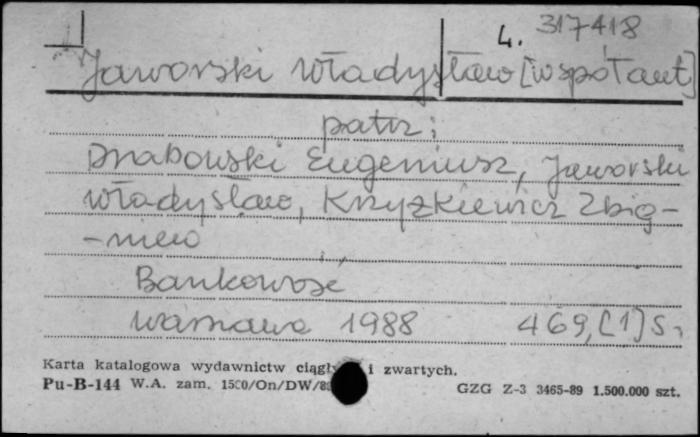 4. 317418
Jaworski Władysław [współaut]
patrz:
Drabowski Eugeniusz, Jaworski
Władysław, Krzyżkiewicz Zbig-
-niew
Bankowość
Warszawa 1988 469,[1] s.
Karta katalogowa wydawnictw i zwartych.
Pu-B-144 W.A. zam. GZG Z-3 3465-89 1.500.000 szt.